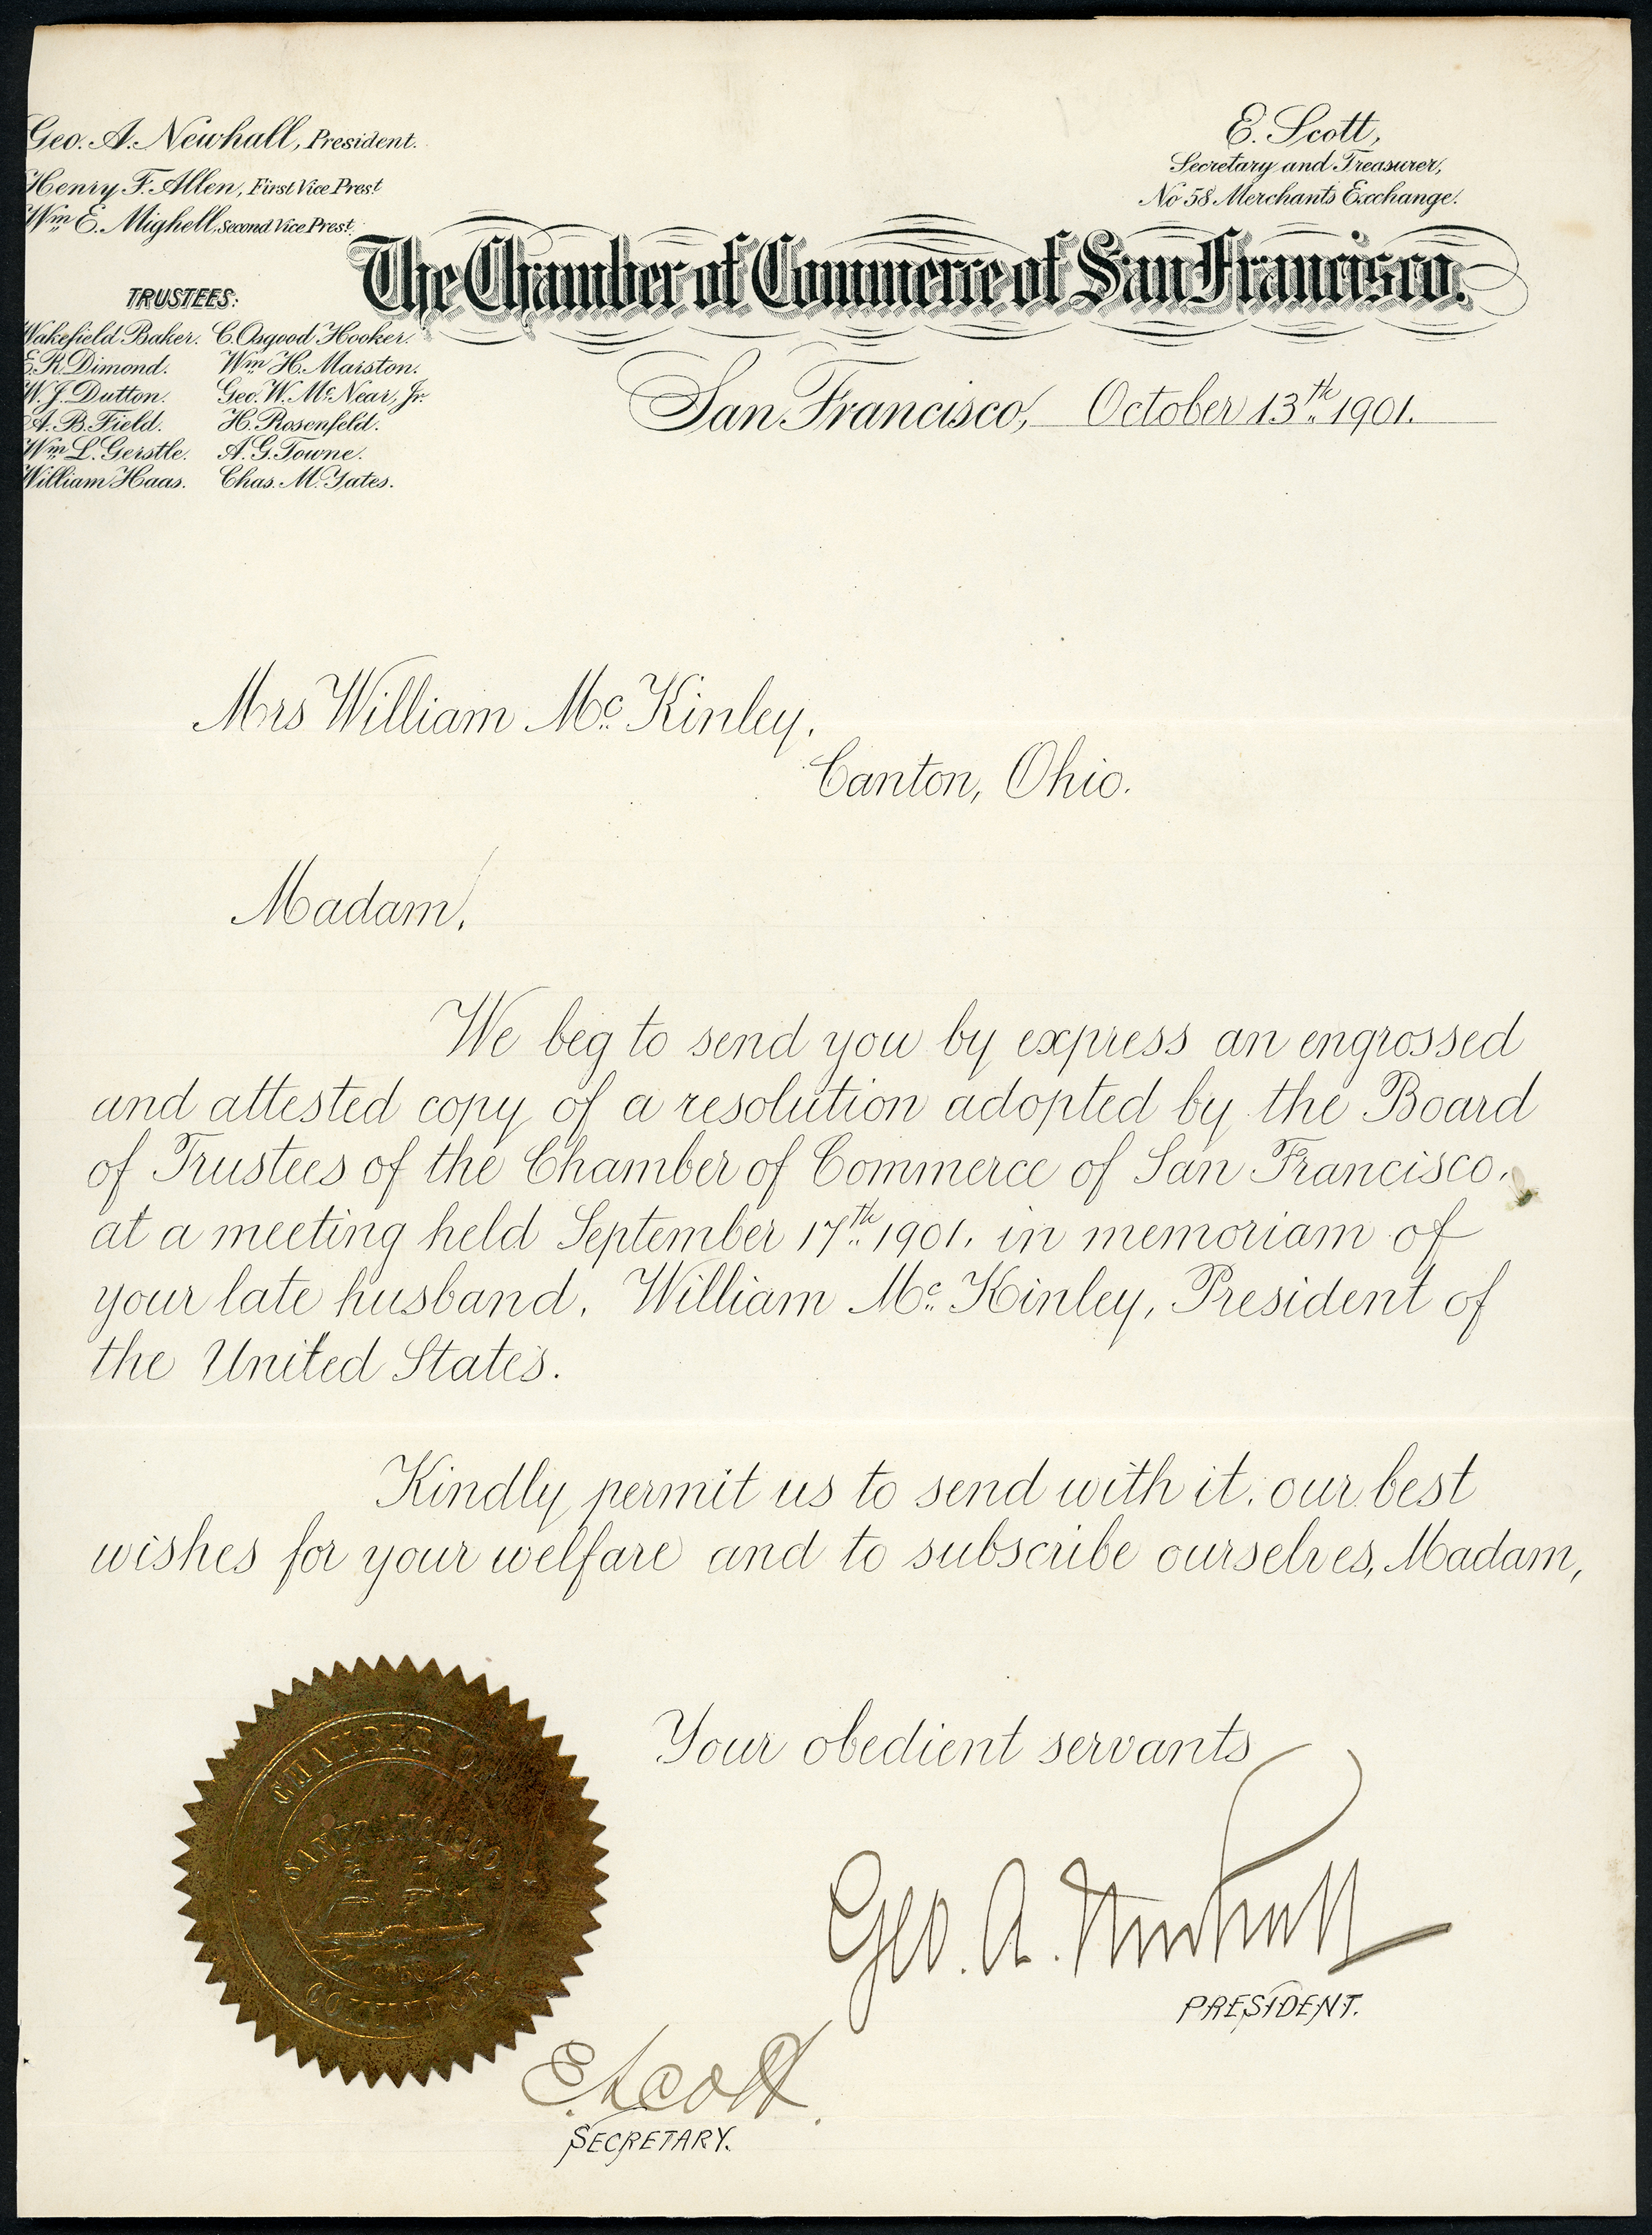 Geo. A. Newhall, President.
Henry F. Allen, First Vice Prest.
Wm. E. Mighell, Second Vice Prest.
E. Scott,
Secretary and Treasurer,
No 58 Merchants Exchange.
The Chamber of Commerce of San Francisco.
TRUSTEES:
Wakefield Baker. C. Osgood Hooker.
E. R. Dimond. Wm. H. Marston.
W. J. Dutton. Geo. W. McNear, Jr.
A. B. Field. H. Rosenfeld.
Wm. L. Gerstle. A. G. Towne.
William Haas. Chas. M. Yates.
San Francisco, October 13th 1901.
Mrs William McKinley,
Canton, Ohio.
Madam,
We beg to send you by express an engrossed
and attested copy of a resolution adopted by the Board
of Trustees of the Chamber of Commerce of San Francisco,
at a meeting held September 17th 1901, in memoriam of
your late husband, William McKinley, President of
the United States.
Kindly permit us to send with it, our best
wishes for your welfare and to subscribe ourselves, Madam,
Your obedient servants
CHAMBER OF
SAN FRANCISCO
COMMERCE
Geo. A. Newhall
PRESIDENT.
E. Scott.
SECRETARY.